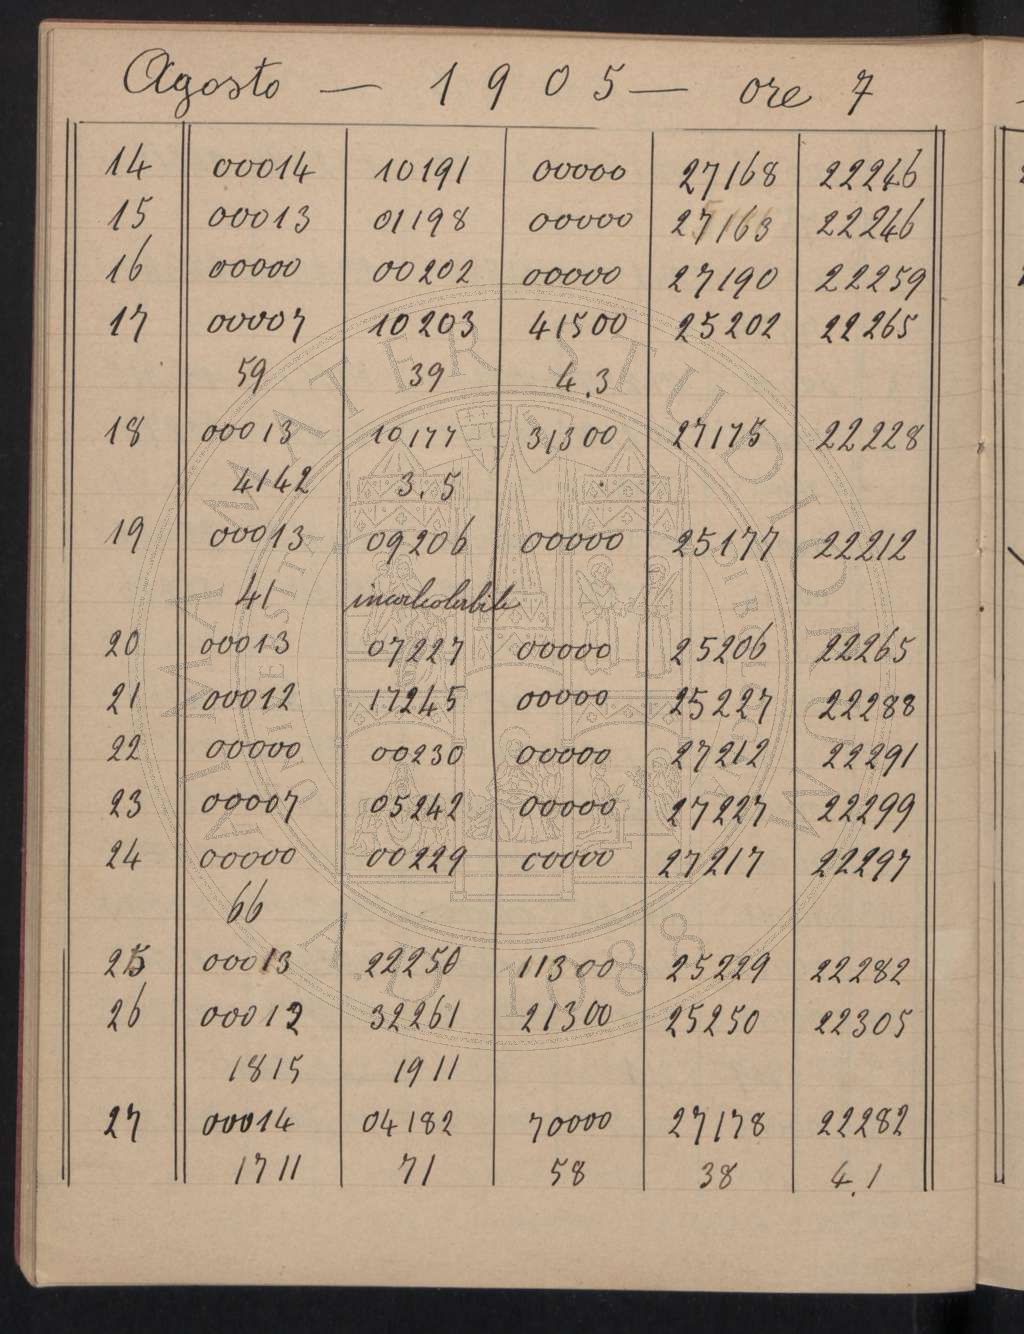 Agosto — 1905 — ore 7
14 00014 10191 00000 27168 22246
15 00013 01198 00000 27163 22246
16 00000 00202 00000 27190 22259
17 00007 10203 41500 25202 22265
59 39 4.3
18 00013 10177 31300 27175 22228
4142 3.5
19 00013 09206 00000 25177 22212
41 incalcolabile
20 00013 07227 00000 25206 22265
21 00012 17245 00000 25227 22288
22 00000 00230 00000 27212 22291
23 00007 05242 00000 27227 22299
24 00000 00229 00000 27217 22297
66
25 00013 22250 11300 25229 22282
26 00012 32261 21300 25250 22305
1815 1911
27 00014 04182 70000 27178 22282
1711 71 58 38 4.1
ALMA MATER STUDIORUM
A.D. 1088